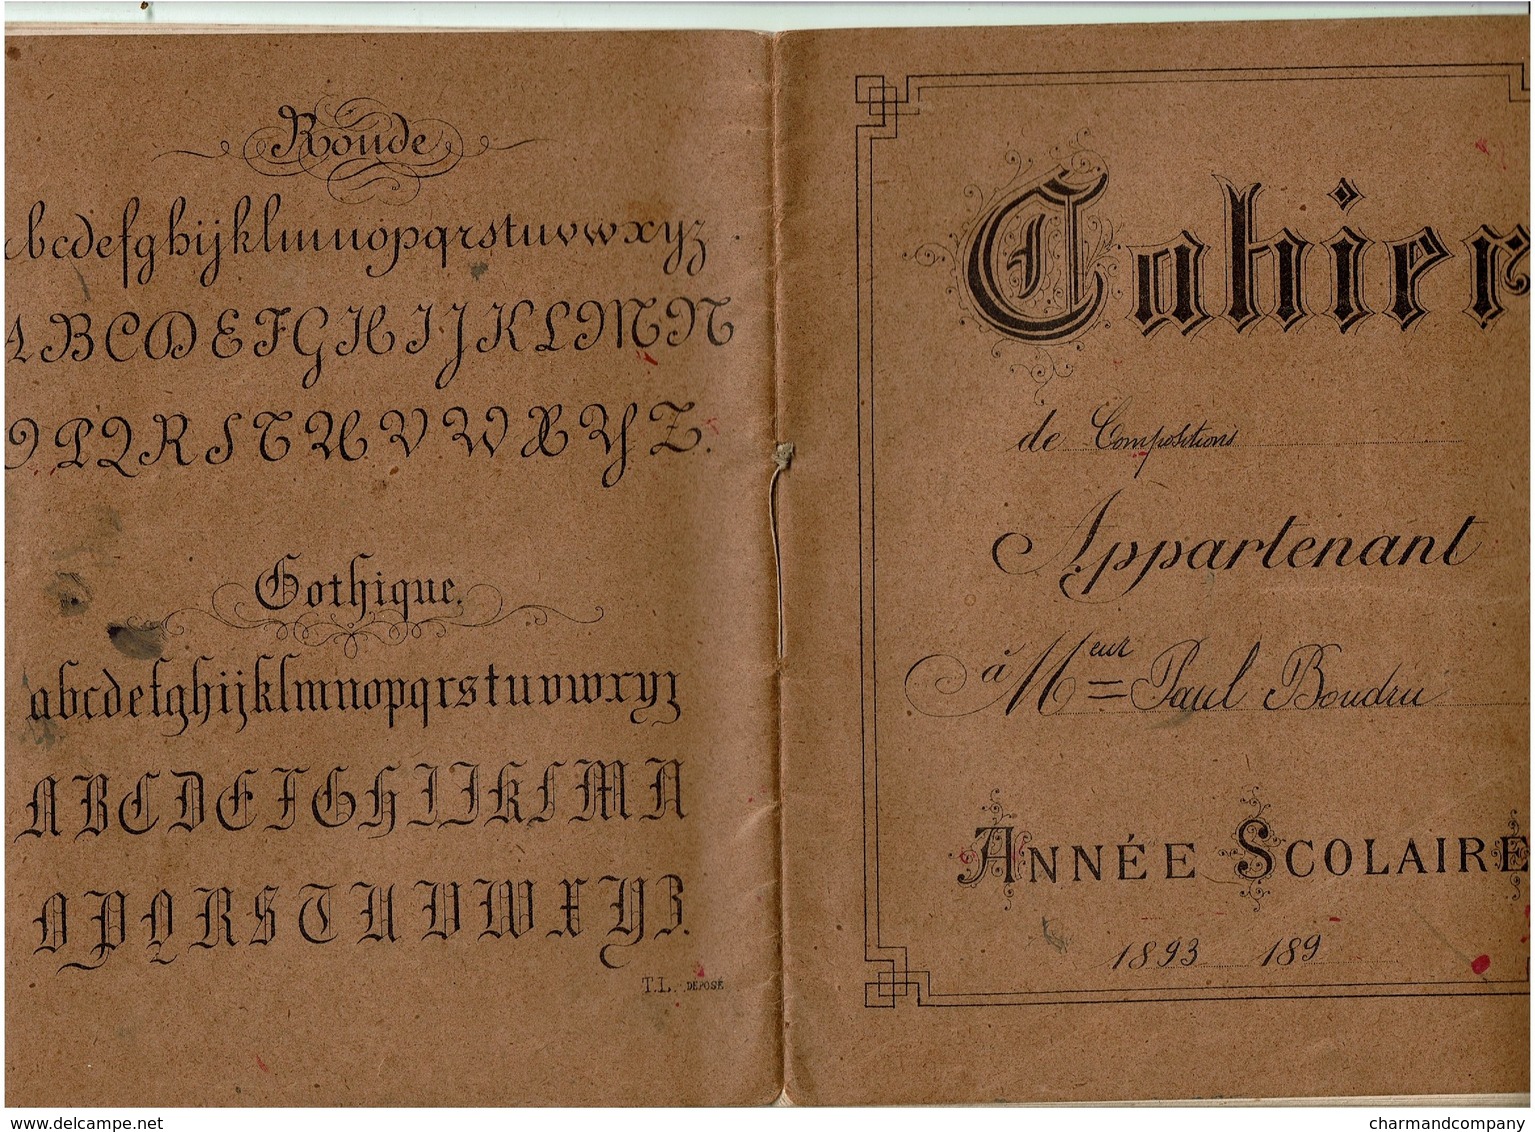 Ronde
bcdefghijklmnopqrstuvwxyz.
ABCDEFGHIJKLMN
OPQRSTUVWXYZ.
Gothique.
abcdefghijklmnopqrstuvwxyz
ABCDEFGHIJKLMN
OPQRSTUVWXYZ.
T.L. DÉPOSÉ
Cahier
de Compositions
Appartenant
à Meur Paul Boudru
ANNÉE SCOLAIRE
1893 189
www.delcampe.net
charmandcompany